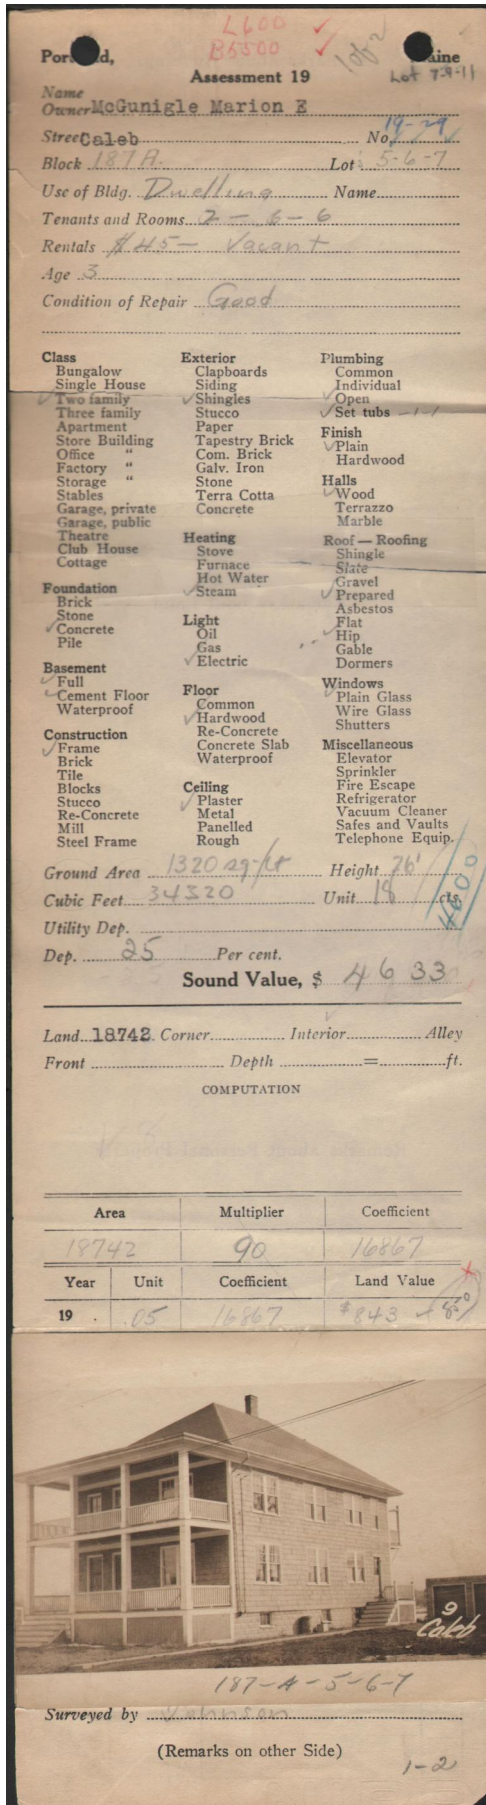 L600 ✓
B5500 ✓
1 of 2
Portland, Maine
Lot 7-9-11
Assessment 19
Name
Owner McGunigle Marion E
Street Caleb No. 19-29
Block 187A. Lot 5-6-7
Use of Bldg. Dwelling Name
Tenants and Rooms 2-6-6
Rentals $45- Vacant
Age 3
Condition of Repair Good
Class
Bungalow
Single House
✓ Two family
Three family
Apartment
Store Building
Office "
Factory "
Storage "
Stables
Garage, private
Garage, public
Theatre
Club House
Cottage
Foundation
Brick
Stone
✓ Concrete
Pile
Basement
✓ Full
✓ Cement Floor
Waterproof
Construction
✓ Frame
Brick
Tile
Blocks
Stucco
Re-Concrete
Mill
Steel Frame
Exterior
Clapboards
Siding
✓ Shingles
Stucco
Paper
Tapestry Brick
Com. Brick
Galv. Iron
Stone
Terra Cotta
Concrete
Heating
Stove
Furnace
Hot Water
✓ Steam
Light
Oil
Gas
✓ Electric
Floor
Common
✓ Hardwood
Re-Concrete
Concrete Slab
Waterproof
Ceiling
✓ Plaster
Metal
Panelled
Rough
Plumbing
Common
Individual
✓ Open
✓ Set tubs -1-1
Finish
✓ Plain
Hardwood
Halls
✓ Wood
Terrazzo
Marble
Roof — Roofing
Shingle
Slate
Gravel
✓ Prepared
Asbestos
Flat
✓ Hip
Gable
Dormers
Windows
✓ Plain Glass
Wire Glass
Shutters
Miscellaneous
Elevator
Sprinkler
Fire Escape
Refrigerator
Vacuum Cleaner
Safes and Vaults
Telephone Equip.
Ground Area 1320 sq-ft Height 26'
Cubic Feet 34320 Unit 18 cts.
4600
Utility Dep.
Dep. 25 Per cent.
Sound Value, $ 4633
Land 18742. Corner Interior ✓ Alley
Front Depth = ft.
COMPUTATION
Area Multiplier Coefficient
18742 90 16867
Year Unit Coefficient Land Value
19 .05 16867 $843 - 850
9
Caleb
187-A-5-6-7
Surveyed by Johnson
(Remarks on other Side)
1-2